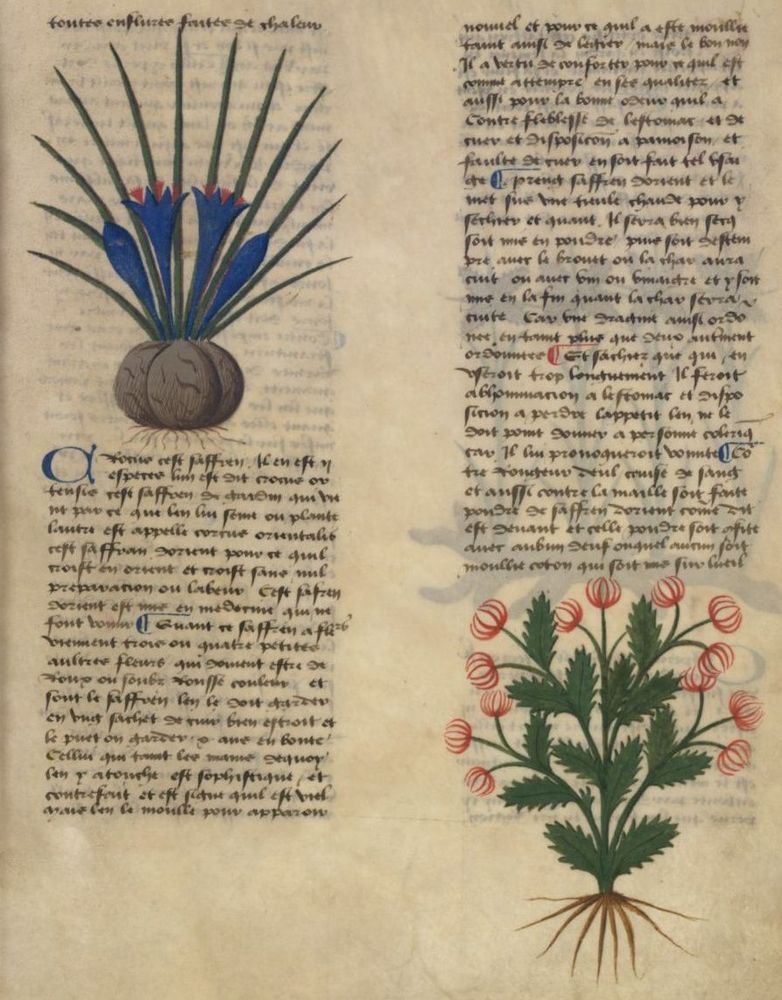 toutes enflures faites de chaleur
Crocus cest saffren. Il en est ii
especes lun est dit crocus or
tensis cest saffren de gardin qui vi
ent par ce que len lui seme ou plante
lautre est appelle corcus orientalis
cest saffran dorient pour ce quil
croist en orient et croist sans nul
preparacion ou labeur Cest safren
dorient est mis en medecine qui ne
font vomir ¶ Quant ce saffren a flers
viennent trois ou quatre petites
aultres fleurs qui doivent estre de
Roux ou soubz Rousse couleur et
sont le saffren len le doit garder
en ung sachet de cuir bien estroit et
le puet on garder x ans en bonte
Cellui qui taint les mains dequoy
len y atouche est sophistique et
contrefait et est signe quil est viel
mais len le moulle pour apparoir
nouvel et pour ce quil a este moullie
taint ainsi de legier mais le bon non
Il a vertu de conforter pour ce quil est
comme attempre en ses qualitez et
aussi pour la bonne odeur quil a
Contre fleblesse de lestomac et de
cuer et disposicon a pamoison et
faulte de cuer en soit fait tel usai
ge ¶ preng saffren dorient et le
met sus une tieule chaude pour y
sechier et quant Il serra bien secq
soit mis en pouldre puis soit destem
pre avec le brouet ou la char aura
cuit ou avec vin ou vinaigre et y soit
mis en la fin quant la char serra
cuite Car une dragme ainsi ordo
nee en taint plus que deux autment
ordonnees ¶ Et sachiez que qui en
useroit trop longuement Il feroit
abhominacion a lestomac et dispo
sicion a perdre lappetit len ne le
doit point donner a personne coleriq
car Il lui provoqueroit vomite ¶ Co
tre Rongeur deul causee de sang
et aussi contre la maille soit faite
pouldre de saffren dorient come dit
est devant et celle pouldre soit
avec aubun deuf ouquel aucun soit
moullie coton qui soit mis sur lueil